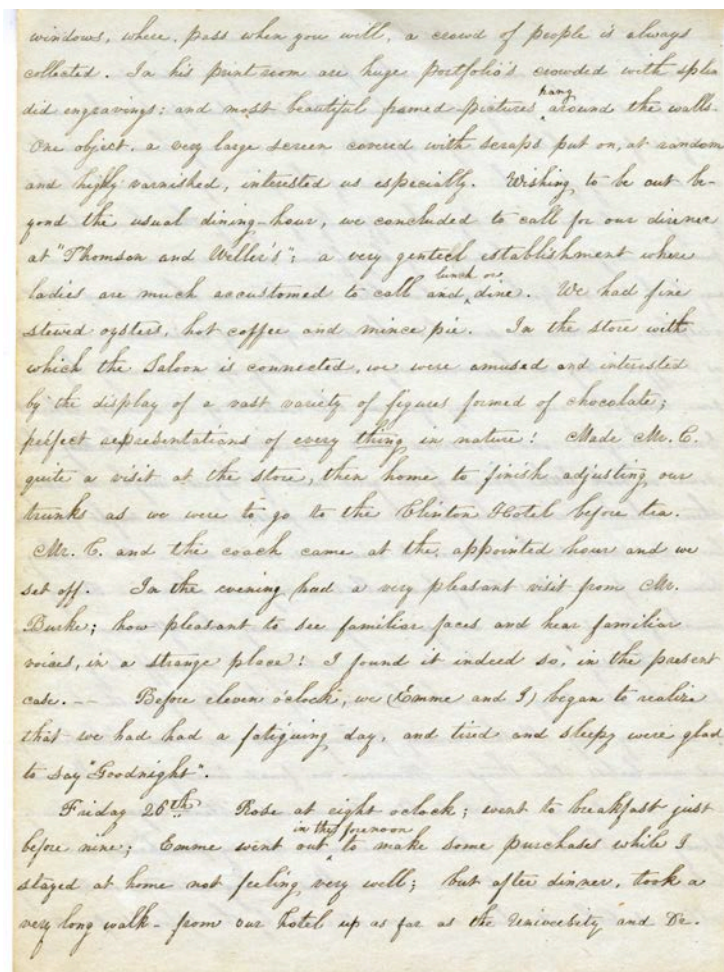 windows, where, pass when you will, a crowd of people is always
collected. In his print room are huge portfolio's crowded with splen
did engravings; and most beautiful framed pictures hang around the walls.
One object, a very large screen covered with scraps put on, at random
and highly varnished, interested us especially. Wishing to be out be-
yond the usual dining-hour, we concluded to call for our dinner
at "Thomson and Weller's"; a very genteel establishment where
ladies are much accustomed to call and lunch or dine. We had fine
stewed oysters, hot coffee and mince pie. In the store with
which the Saloon is connected, we were amused and interested
by the display of a vast variety of figures formed of chocolate;
perfect representations of every thing in nature! Made Mr. C.
quite a visit at the store, then home to finish adjusting our
trunks as we were to go to the Clinton Hotel before tea.
Mr. C. and the coach came at the appointed hour and we
set off. In the evening had a very pleasant visit from Mr.
Burke; how pleasant to see familiar faces and hear familiar
voices, in a strange place! I found it indeed so, in the present
case. -- Before eleven o'clock, we (Emme and I) began to realize
that we had had a fatiguing day, and tired and sleepy were glad
to say "Goodnight".
Friday 26th. Rose at eight o'clock; went to breakfast just
before nine; Emme went out in the forenoon to make some purchases while I
stayed at home not feeling very well; but after dinner, took a
very long walk - from our hotel up as far as the University and Dr.